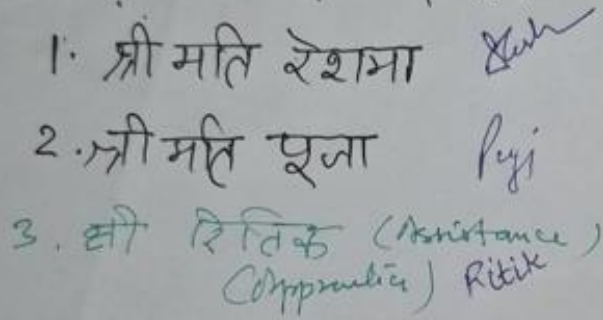 1. श्रीमति रेशमा
2. श्रीमति पूजा Puji
3. श्री रितिक (Assistance)
(Apprentice) Ritik